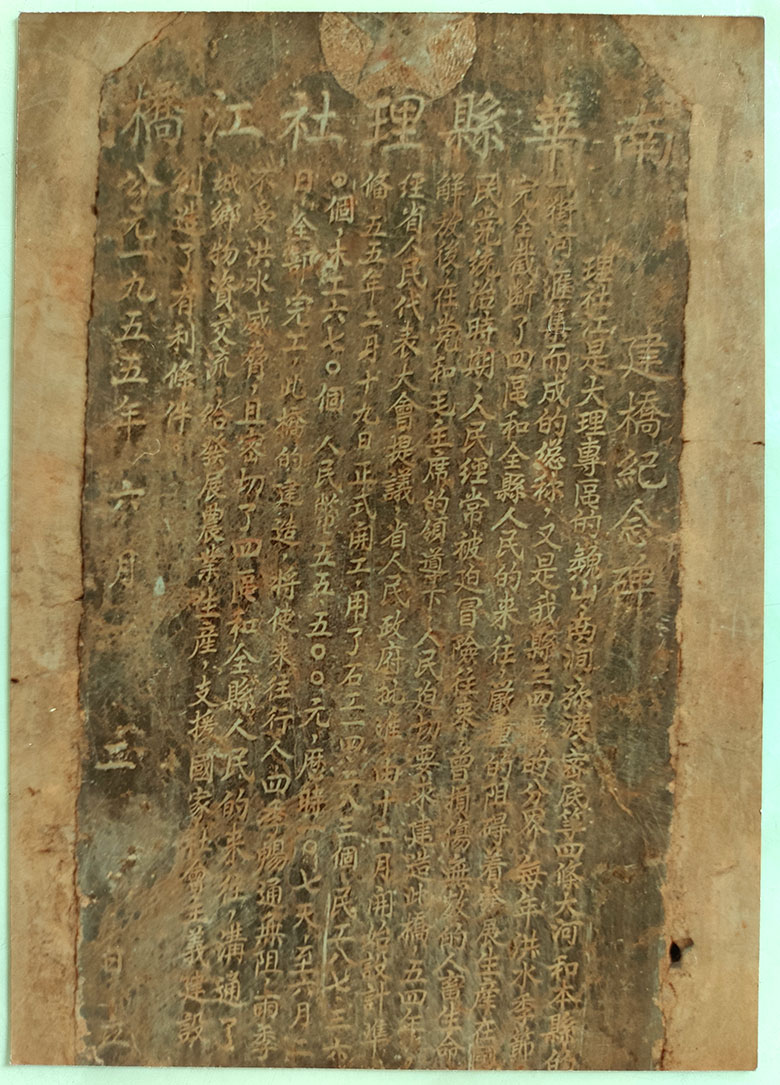 南華縣理社江橋
建橋紀念碑
理社江是大理專區的巍山、南澗、弥渡、密底等四條大河和本縣的
一街河滙集而成的总称，又是我縣三四區的分界，每年洪水季節
完全截断了四區和全縣人民的来往，嚴重的阻碍着發展生産在國
民党統治時期，人民經常被迫冒險往来，曾損傷無数的人畜生命
解放後，在党和毛主席的領導下，人民迫切要求建造此橋，五四年
經省人民代表大會提議，省人民政府批准，由十二月開始設計準
俻，五五年二月十九日正式開工，用了石工一四二八三個，民工八七三六
〇個，木工六七〇個，人民幣五五五〇〇元，歷時一〇七天，至六月二
日，全部完工，此橋的建造，將使来往行人四季暢通無阻，雨季
不受洪水威脅，且密切了四區和全縣人民的来往，溝通了
城鄉物資交流，給發展農業生産，支援國家社會主義建設
創造了有利條件。
公元一九五五年六月 日立